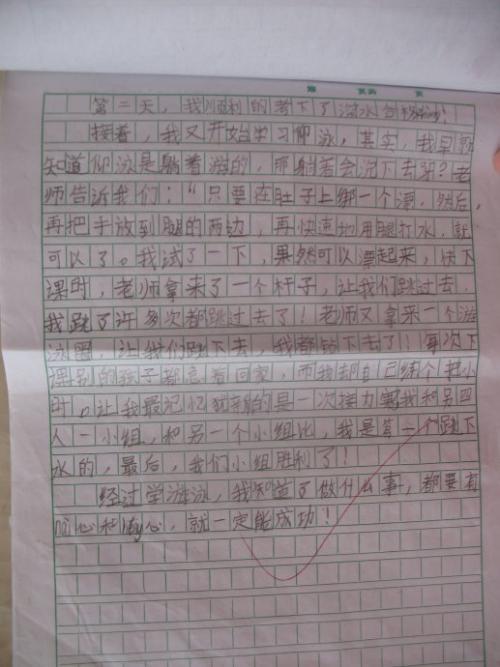 第 页 共 页
第二天，我顺利的考下了深水合格证！
接着，我又开始学习仰泳，其实，我早就
知道仰泳是躺着游的，那躺着会沉下去吗？老
师告诉我们：“只要在肚子上绑一个漂，然后，
再把手放到腿的两边，再快速地用腿打水，就
可以了。我试了一下，果然可以漂起来，快下
课时，老师拿来了一个杆子，让我们跳过去，
我跳了许多次都跳过去了！老师又拿来一个游
泳圈，让我们跳下去，我都跳下去了！每次下
课别的孩子都急着回家，而我却自己练个把小
时。让我最记忆犹新的是一次接力赛我和另四
人一小组，和另一个小组比，我是第一个跳下
水的，最后，我们小组胜利了！
经过学游泳，我知道了做什么事，都要有
心和心，就一定能成功！